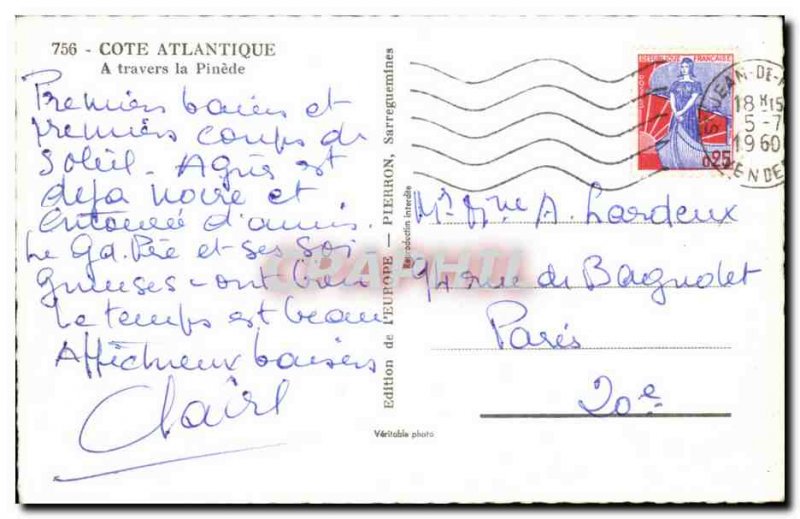 756 - COTE ATLANTIQUE
A travers la Pinède
Premiers bains et
premiers coups de
Soleil. Agnès est
déjà noire et
entourée d'amis.
Le Gd. Père et ses Soi
gneuses - ont bien
Le temps est beau
Affectueux baisers
Claire
Edition de l'EUROPE — PIERRON, Sarreguemines
Reproduction interdite
Véritable photo
REPUBLIQUE FRANÇAISE
0,25
ST JEAN-DE-M
18H15
5-7
1960
VENDEE
Mr Mme A. Lardeux
94 rue de Bagnolet
Paris
20e
CPAPHIL